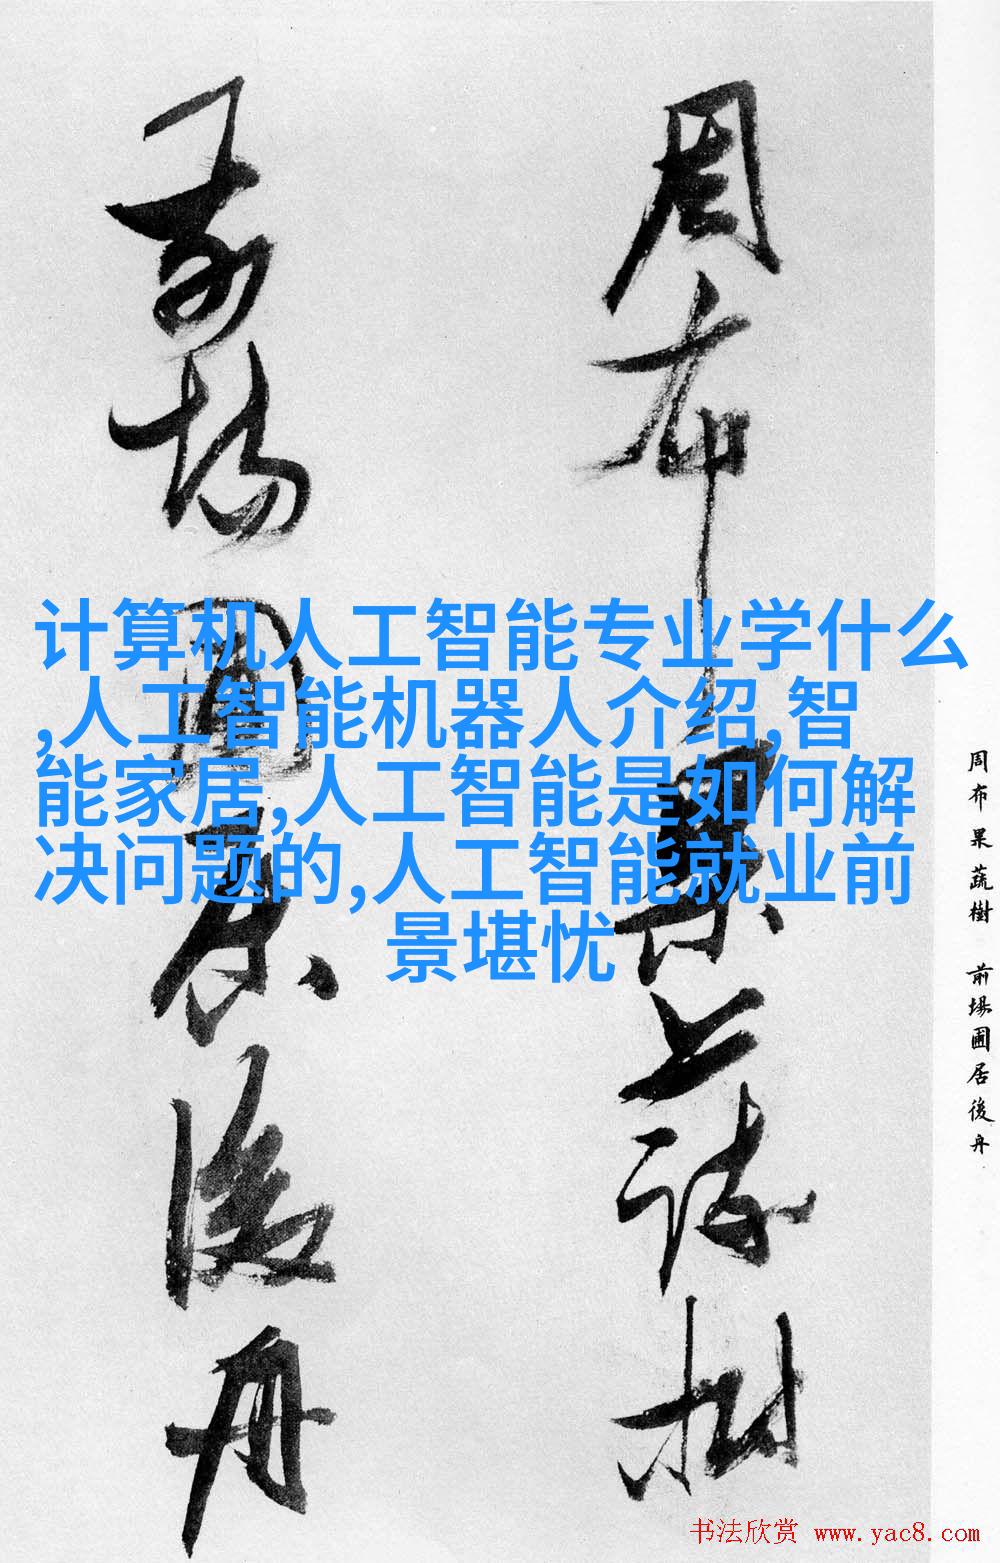 周布果蔬樹
前場圃居後舟
计算机人工智能专业学什么
,人工智能机器人介绍,智
能家居,人工智能是如何解
决问题的,人工智能就业前
景堪忧
周布果蔬樹 前場圃居後舟
书法欣赏 www.yac8.com